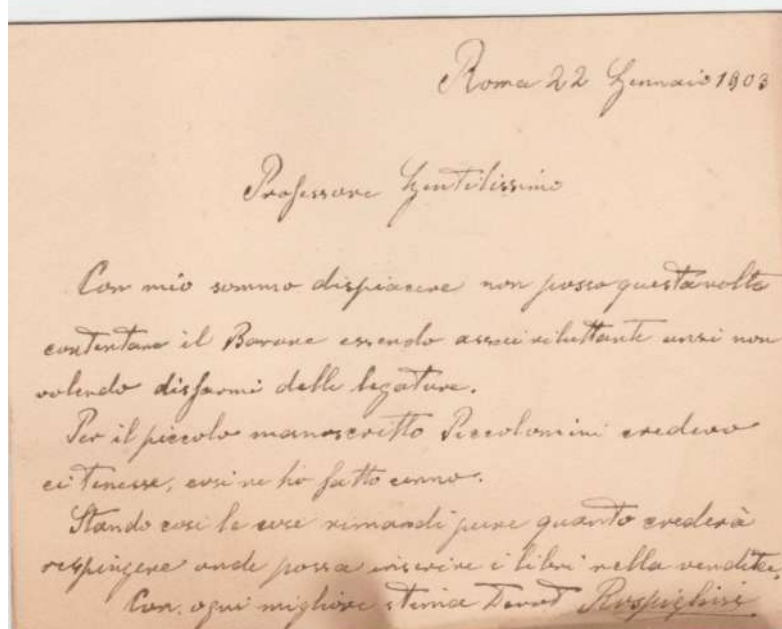 Roma 22 Gennaio 1903
Professore Gentilissimo
Con mio sommo dispiacere non posso questa volta
contentare il Barone essendo assai riluttante anzi non
volendo disfarmi delle legature.
Per il piccolo manoscritto Piccolomini credevo
ci tenesse, così ne ho fatto cenno.
Stando così le cose rimandi pure quanto crederà
respingere onde possa inserire i libri nella vendita,
Con ogni migliore stima Devot Rospigliosi